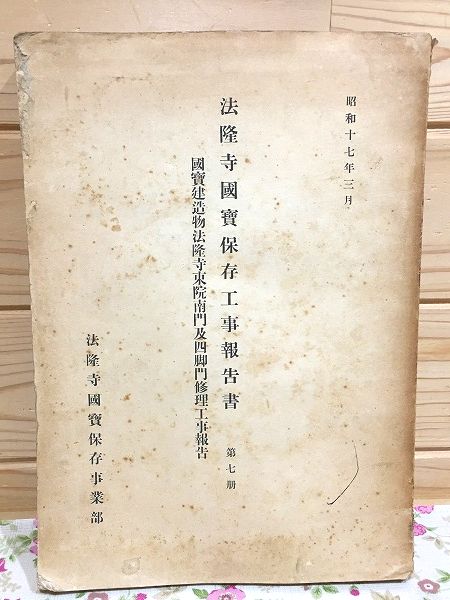 昭和十七年三月
法隆寺國寶保存工事報告書 第七册
國寶建造物法隆寺東院南門及四脚門修理工事報告
法隆寺國寶保存事業部